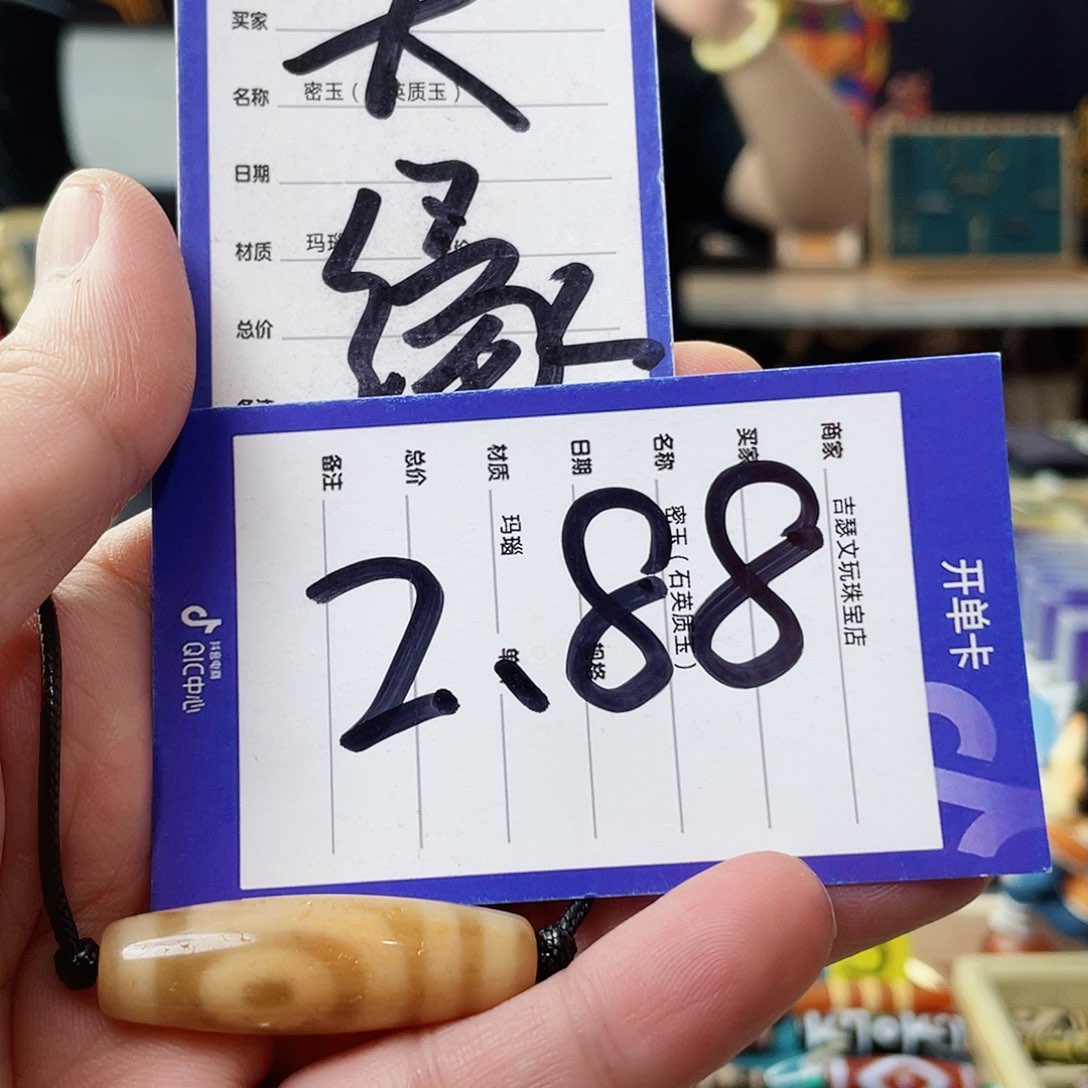 买家
名称 密玉（英质玉）
日期
材质 玛瑙
总价
缘
开单卡
商家 吉瑟文玩珠宝店
买家
名称 密玉（石英质玉）
日期 规格
材质 玛瑙 单
总价
备注
2.88
抖音电商
QIC中心